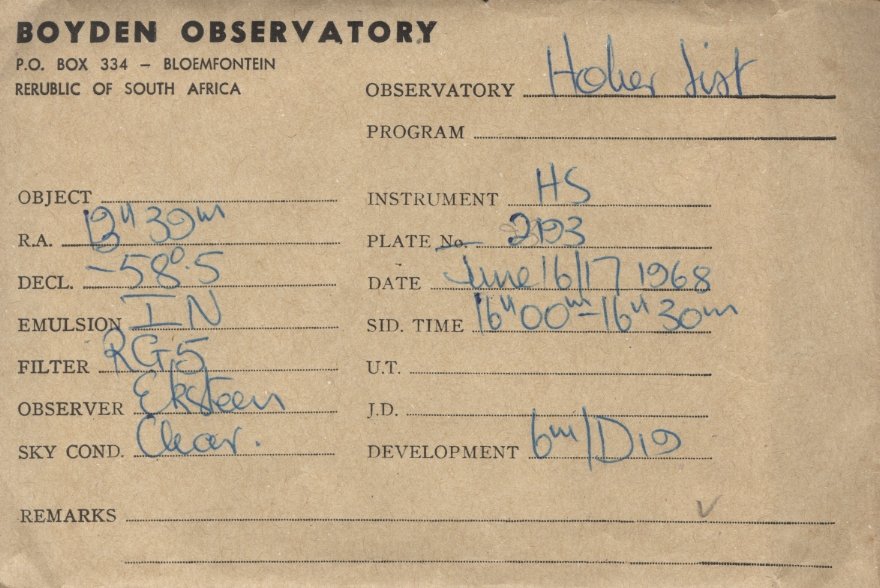 BOYDEN OBSERVATORY
P.O. BOX 334 – BLOEMFONTEIN
RERUBLIC OF SOUTH AFRICA
OBSERVATORY Hoher List
PROGRAM
OBJECT
INSTRUMENT HS
R.A. 13ʰ 39ᵐ
PLATE No. 2193
DECL. -58°.5
DATE June 16/17 1968
EMULSION IN
SID. TIME 16ʰ00ᵐ-16ʰ30ᵐ
FILTER RG5
U.T.
OBSERVER Eksteen
J.D.
SKY COND. Clear.
DEVELOPMENT 6ᵐ/D19
REMARKS